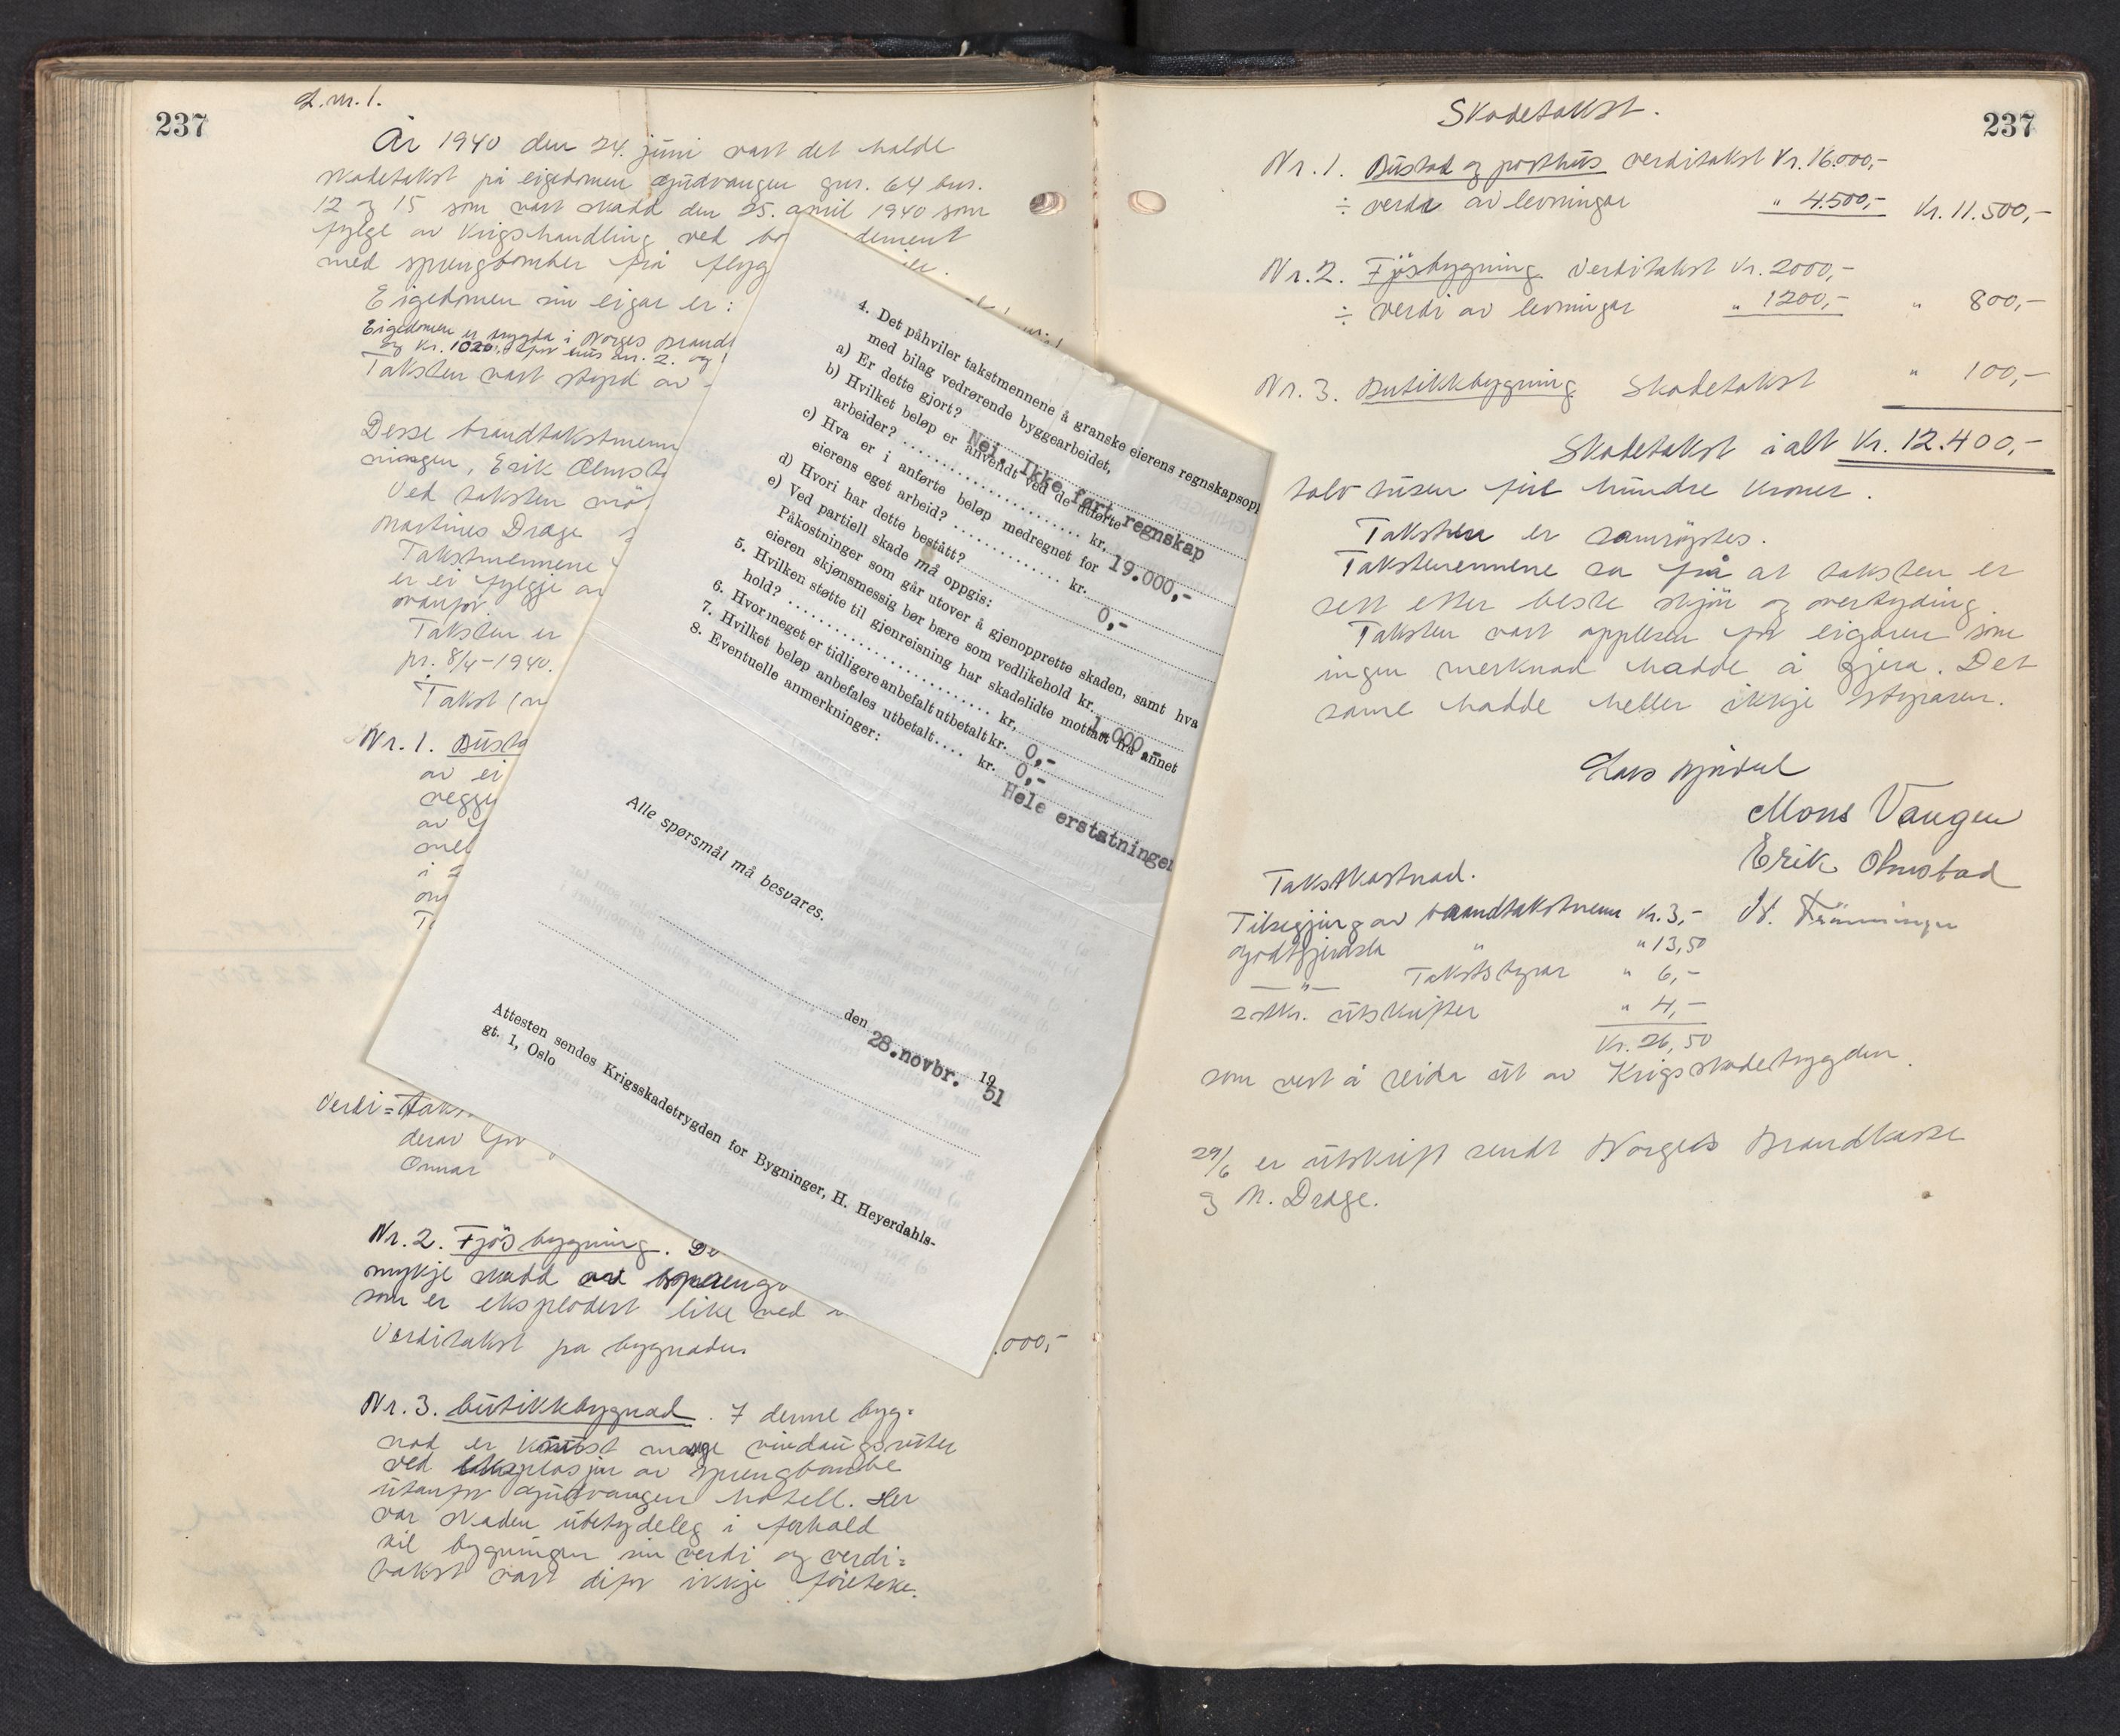 237
L.nr. 1.
År 1940 den 24. juni vart det halde
skadetakst på eigedomen Gudvangen gnr. 64 bnr.
12 og 15 som vart skadd den 25. april 1940 som
fylgje av krigshandling ved bo dement
med sprengbomber frå flyg
Eigedomen sin eigar er:
Eigedomen er trygda i Norges Brand
Taksten vart styrd av
Desse brandtakstmenn
ningen, Erik Olmsta
Ved taksten mø
Martines Drage
Takstmennene
er ei fylgje av
ovanfor.
Taksten er
pr. 8/4-1940.
Takst (
Nr. 1. Busta
av ei
vegg
av
med
i 2
om
Ta
Verdi=takst
derav for
Onnar
Nr. 2. Fjösbygning. De
mykje skadd av spreng
som er eksplodert like ved
Verditakst på bygnaden
.000,-
Nr. 3. butikkbygnad. I denne byg=
nad er knust mange vindaugsruter
ved eksplosjon av sprengbombe
utanfor Gudvangen hotell. Her
var skaden ubetydeleg i forhald
til bygningen sin verdi og verdi=
takst vart difor ikkje företeke.
4. Det påhviler takstmennene å granske eierens regnskapsopl
med bilag vedrørende byggearbeidet,
a) Er dette gjort? Nei. Ikke ført regnskap
b) Hvilket beløp er anvendt ved de utførte
arbeider? kr. 19.000,-
c) Hva er i anførte beløp medregnet for
eierens eget arbeid? kr. 0,-
d) Hvori har dette bestått?
e) Ved partiell skade må oppgis:
Påkostninger som går utover å gjenopprette skaden, samt hva
eieren skjønsmessig bør bære som vedlikehold kr. 1.000,-
5. Hvilken støtte til gjenreisning har skadelidte mottatt fra annet
hold? kr. 0,-
6. Hvor meget er tidligere anbefalt utbetalt kr. 0,-
7. Hvilket beløp anbefales utbetalt.... kr. Hele erstatningen
8. Eventuelle anmerkninger:
Alle spørsmål må besvares.
den 28.novbr. 1951
Attesten sendes Krigsskadetrygden for Bygninger, H. Heyerdahls-
gt. 1, Oslo
237
Skadetakst.
Nr. 1. Bustad og posthus verditakst kr. 16.000,-
÷ verdi av levningar " 4.500,- kr. 11.500,-
Nr. 2. Fjösbygning verditakst kr. 2000,-
÷ verdi av levningar " 1200,- " 800,-
Nr. 3. Butikkbygning Skadetakst " 100,-
Skadetakst ialt kr. 12.400,-
tolv tusen fire hundre kroner.
Taksten er samröystes.
Takstmennene sa frå at taksten er
sett etter beste skjön og overtyding.
Taksten vart opplesen for eigaren som
ingen merknad hadde å gjera. Det
same hadde heller ikkje styraren.
Lars
Mons Vangen
Erik Olmstad
Takstkostnad.
Tilsegjing av brandtakstmenn kr. 3,-
Godtgjersla " " 13,50
—"— Takststyrar " 6,-
2 stk. utskrifter " 4,-
Kr. 26,50
som vert å reida ut av Krigsskadetrygden.
29/6 er utskrift sendt Norges Brandkasse
og M. Drage.